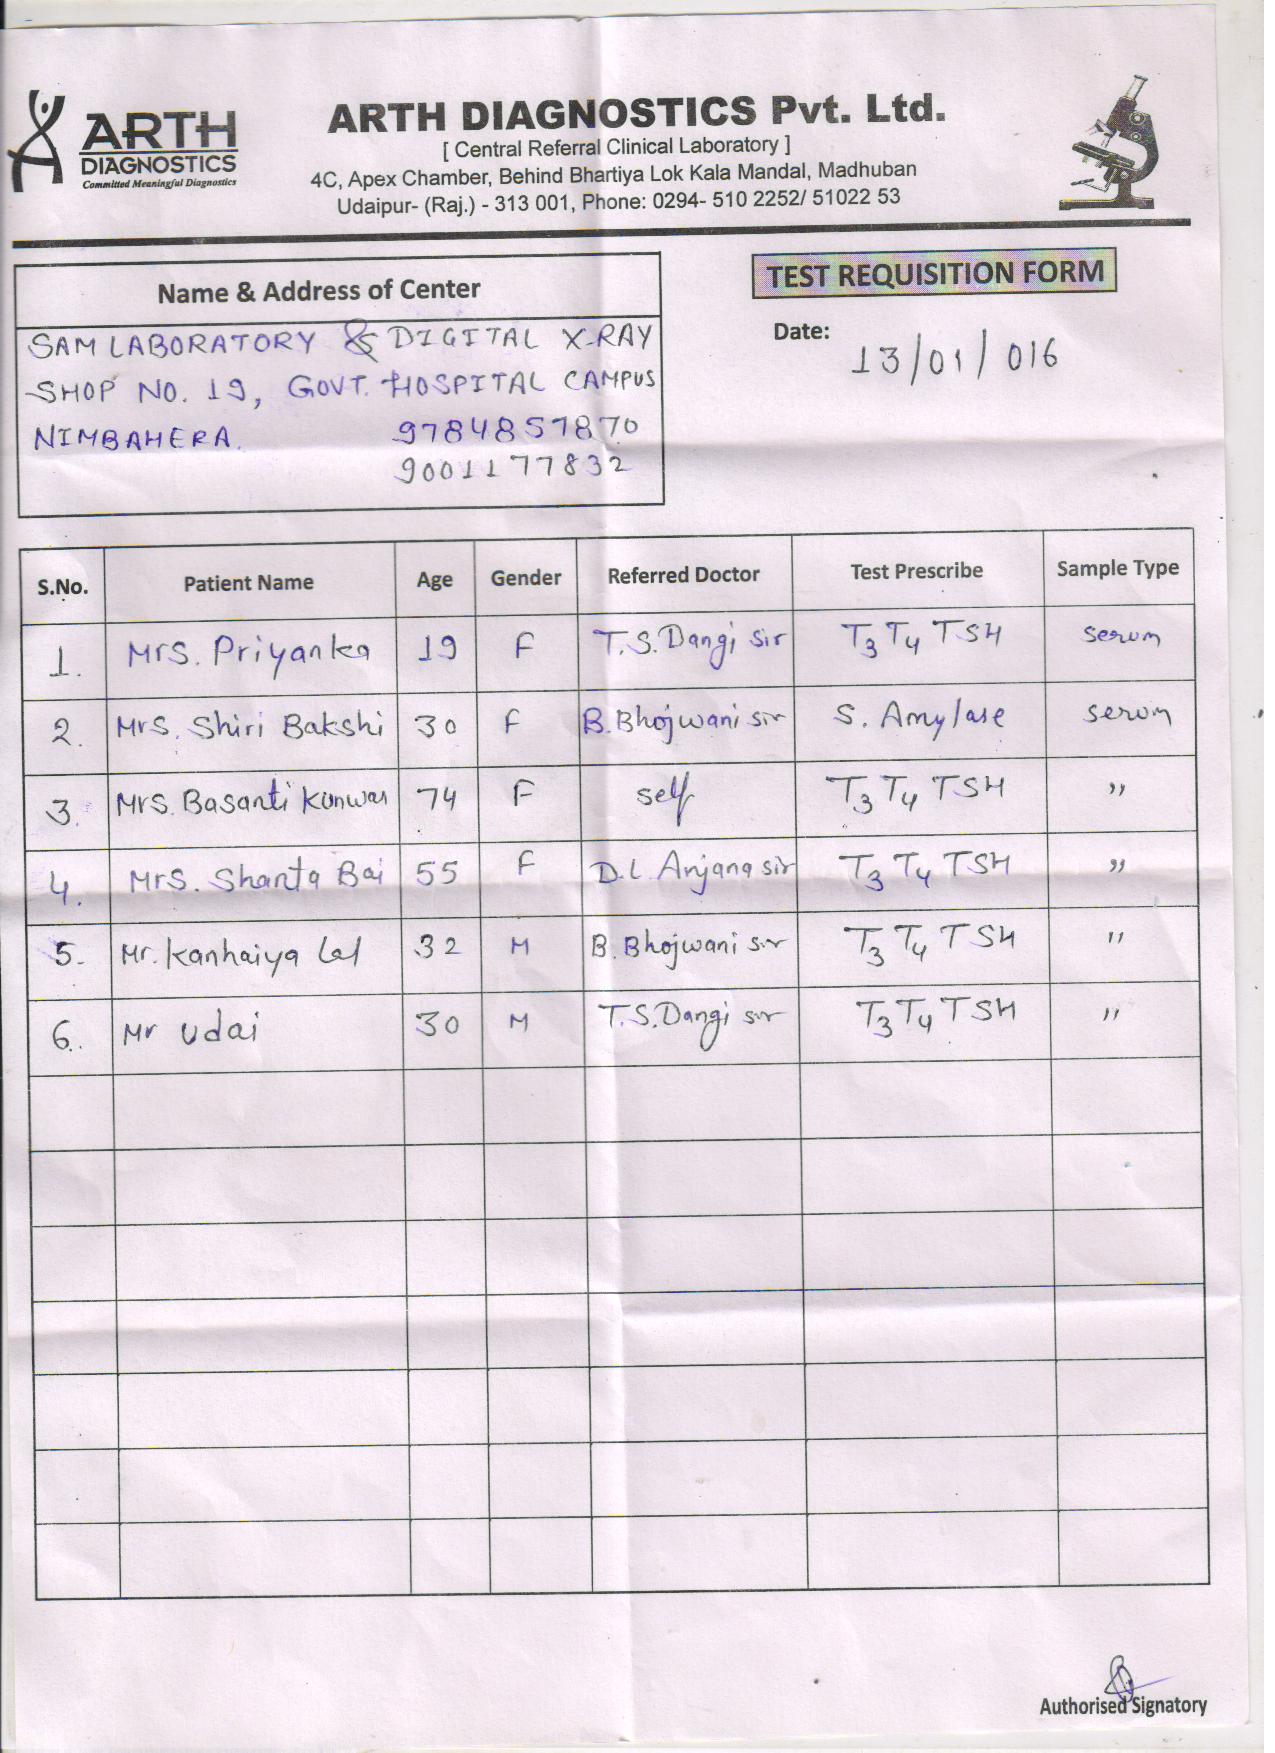 ARTH
DIAGNOSTICS
Committed Meaningful Diagnostics
ARTH DIAGNOSTICS Pvt. Ltd.
[ Central Referral Clinical Laboratory ]
4C, Apex Chamber, Behind Bhartiya Lok Kala Mandal, Madhuban
Udaipur- (Raj.) - 313 001, Phone: 0294- 510 2252/ 51022 53
Name & Address of Center
SAM LABORATORY & DIGITAL X-RAY
SHOP NO. 19, GOVT. HOSPITAL CAMPUS
NIMBAHERA. 9784857870
9001177832
TEST REQUISITION FORM
Date: 13/01/016
S.No. Patient Name Age Gender Referred Doctor Test Prescribe Sample Type
1. Mrs. Priyanka 19 F T.S. Dangi sir T3 T4 TSH serum
2. Mrs. Shiri Bakshi 30 F B. Bhojwani sir S. Amylase serum
3. Mrs. Basanti Kunwar 74 F self T3 T4 TSH "
4. Mrs. Shanta Bai 55 F D.L. Anjana sir T3 T4 TSH "
5. Mr. Kanhaiya Lal 32 M B. Bhojwani sir T3 T4 TSH "
6. Mr Udai 30 M T.S. Dangi sir T3 T4 TSH "
Authorised Signatory